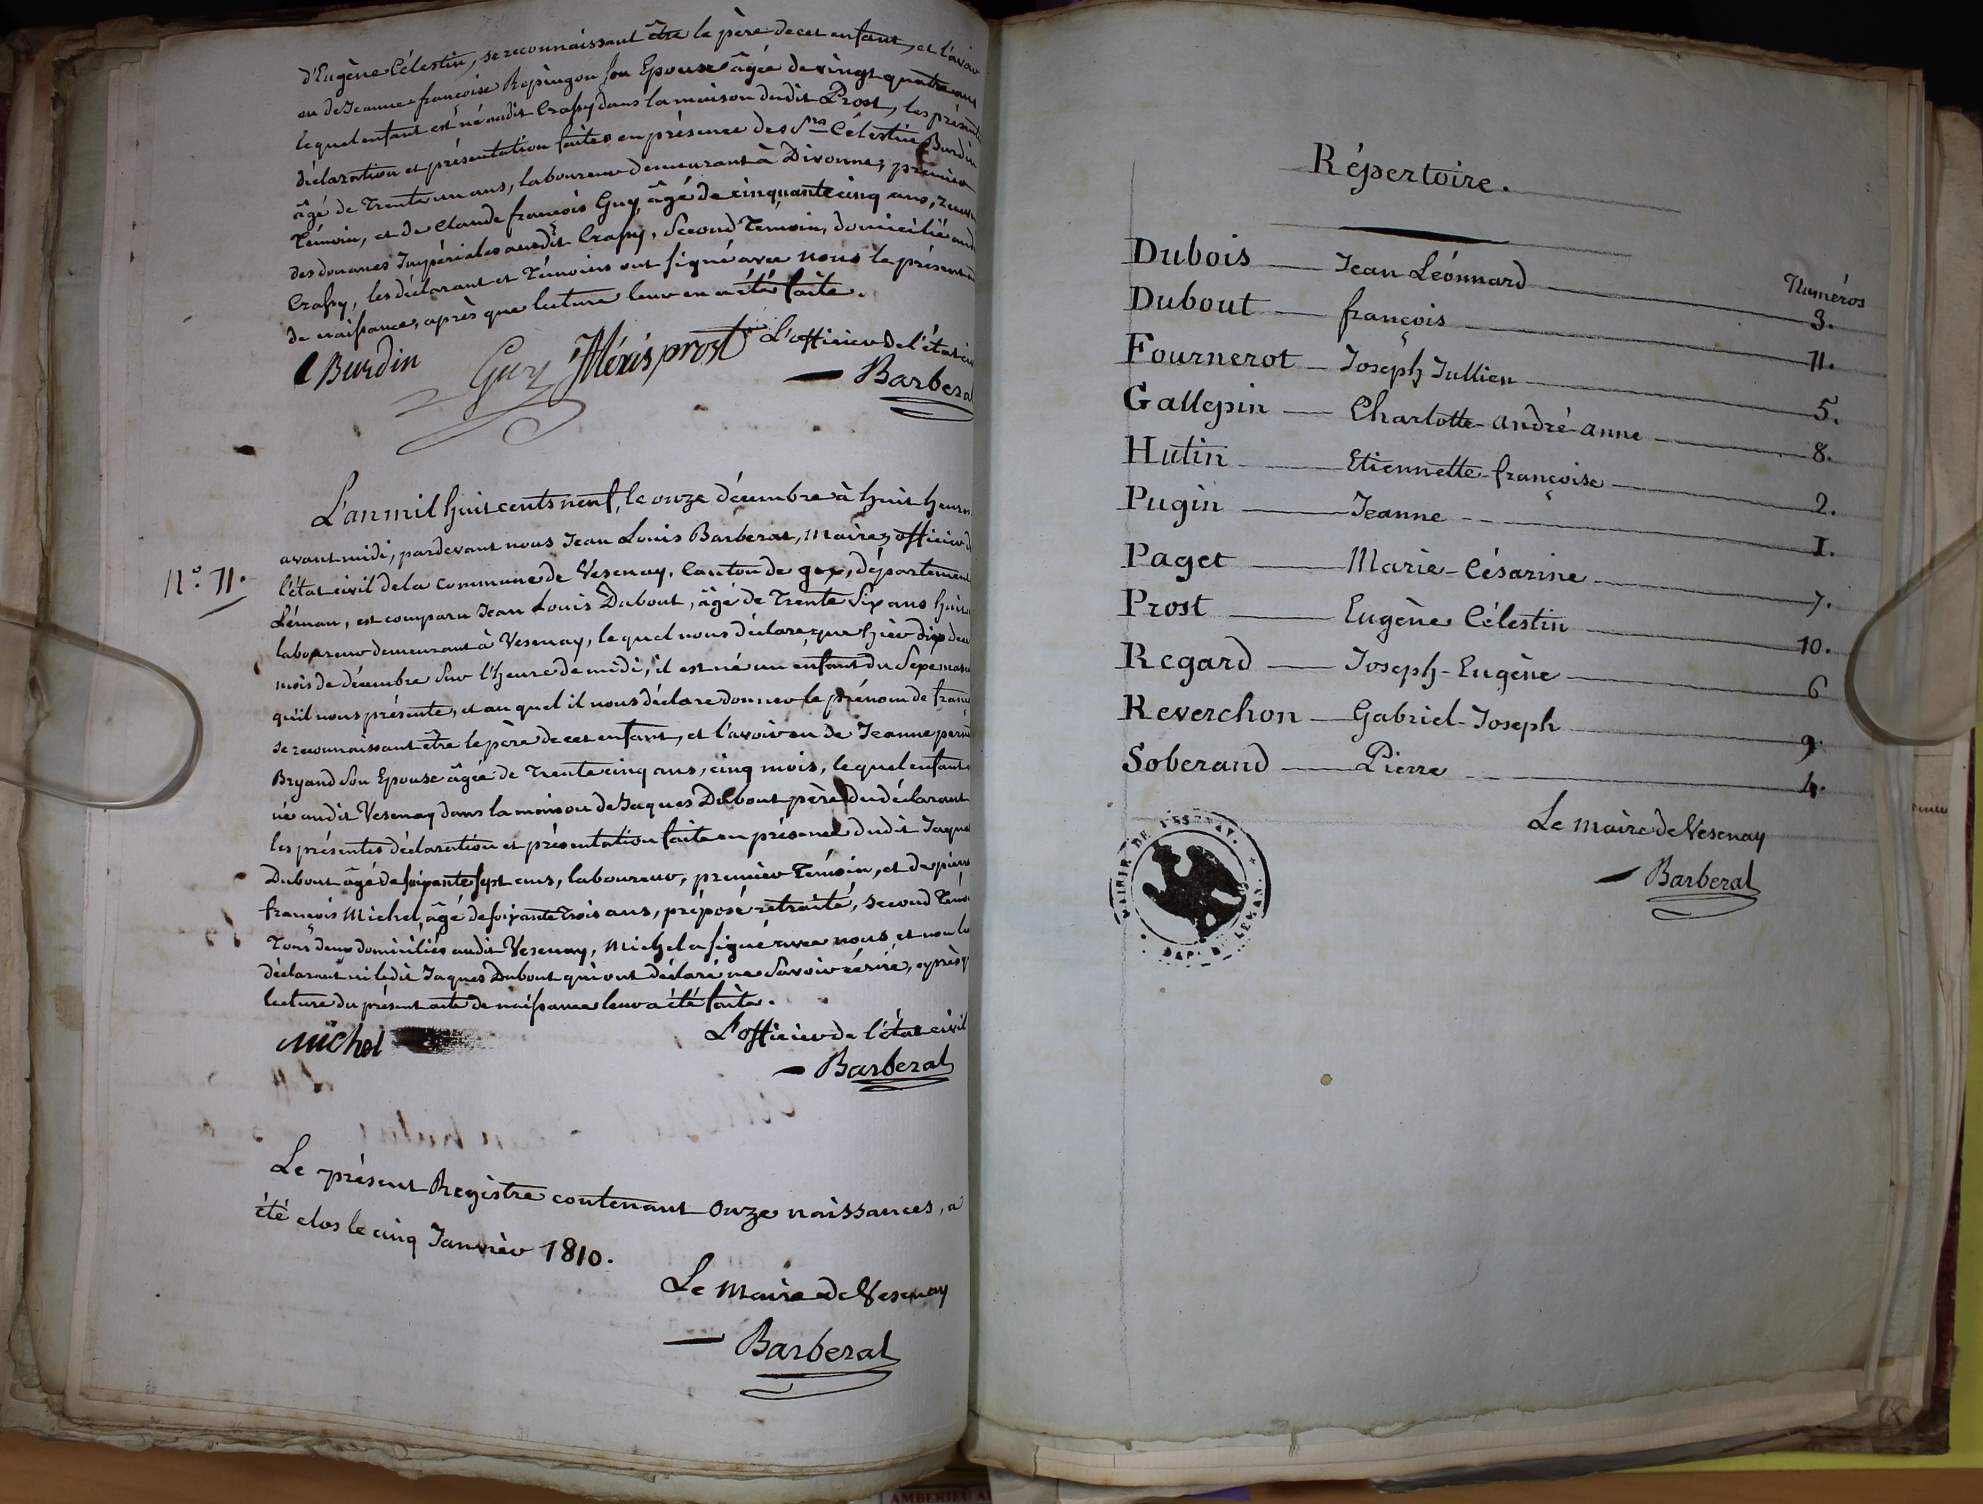 d'Eugène Célestin, se reconnaissant être le père de cet enfant, et l'avoir
eu de Jeanne françoise son Epouse âgée de vingt quatre ans
lequel enfant est né audit Crassy dans la maison dudit Prost, les présente
déclaration et présentation faites en présence des Srs Célestin Burdin
âgé de Trente un ans, laboureur demeurant à Divonne, premier
Témoin, et de Claude françois Guy, âgé de cinquante cinq ans,
des douanes Impériales audit Crassy, Second Témoin, domicilié aud
Crassy, les déclarant et Témoins ont signé avec nous le présent
de naissance, après que lecture leur en a été faite.
Burdin Guy Alexis prost L'officier de l'état ci
Barbera
L'an mil huit cents neuf, le onze décembre à huit heures
avant midi, pardevant nous Jean Louis Barberat, Maire, officier d
N.º 11. l'état civil de la Commune de Vesenay, Canton de gex, département
Léman, est comparu Jean Louis Dubout, âgé de Trente Six ans huit
laboureur demeurant à Vesenay, lequel nous déclare que hier dix du
mois de décembre Sur l'heure de midi, il est né un enfant du Sexe mascu
qu'il nous présente, et au quel il nous déclare donner le prénom de franç
se reconnaissant être le père de cet enfant, et l'avoir eu de Jeanne
Bryand Son Epouse âgée de Trente cinq ans, cinq mois, lequel enfant
né audit Vesenay dans la maison de Jaques Dubout père du déclarant
les présentes déclaration et présentation faite en présence dudit Jaque
Dubout âgé de soixante sept ans, laboureur, premier Témoin, et de pierre
françois Michel, âgé de soixante Trois ans, préposé retraité, second Témo
Tous deux domiciliés audit Vesenay, Michel a signé avec nous, et non le
déclarant ni ledit Jaques Dubout qui ont déclaré ne Savoir écrire, après q
lecture du présent acte de naissance leur a été faite.
Michel L'officier de l'état civil
Barberat
Le présent Registre contenant onze naissances, a
été clos le cinq Janvier 1810.
Le Maire de Vesenay
Barberat
Répertoire.
Numéros
Dubois Jean Leónnard 3.
Dubout françois 11.
Fournerot Joseph Jullien 5.
Gallepin Charlotte andré anne 8.
Hutin Etiennette françoise 2.
Pugin Jeanne 1.
Paget Marie-Césarine 7.
Prost Eugène Célestin 10.
Regard Joseph-Eugène 6
Reverchon Gabriel-Joseph 9.
Soberand Pierre 4.
Le maire de Vesenay
Barberat
MAIRIE DE VESENAY.
DEP. DU LEMAN.